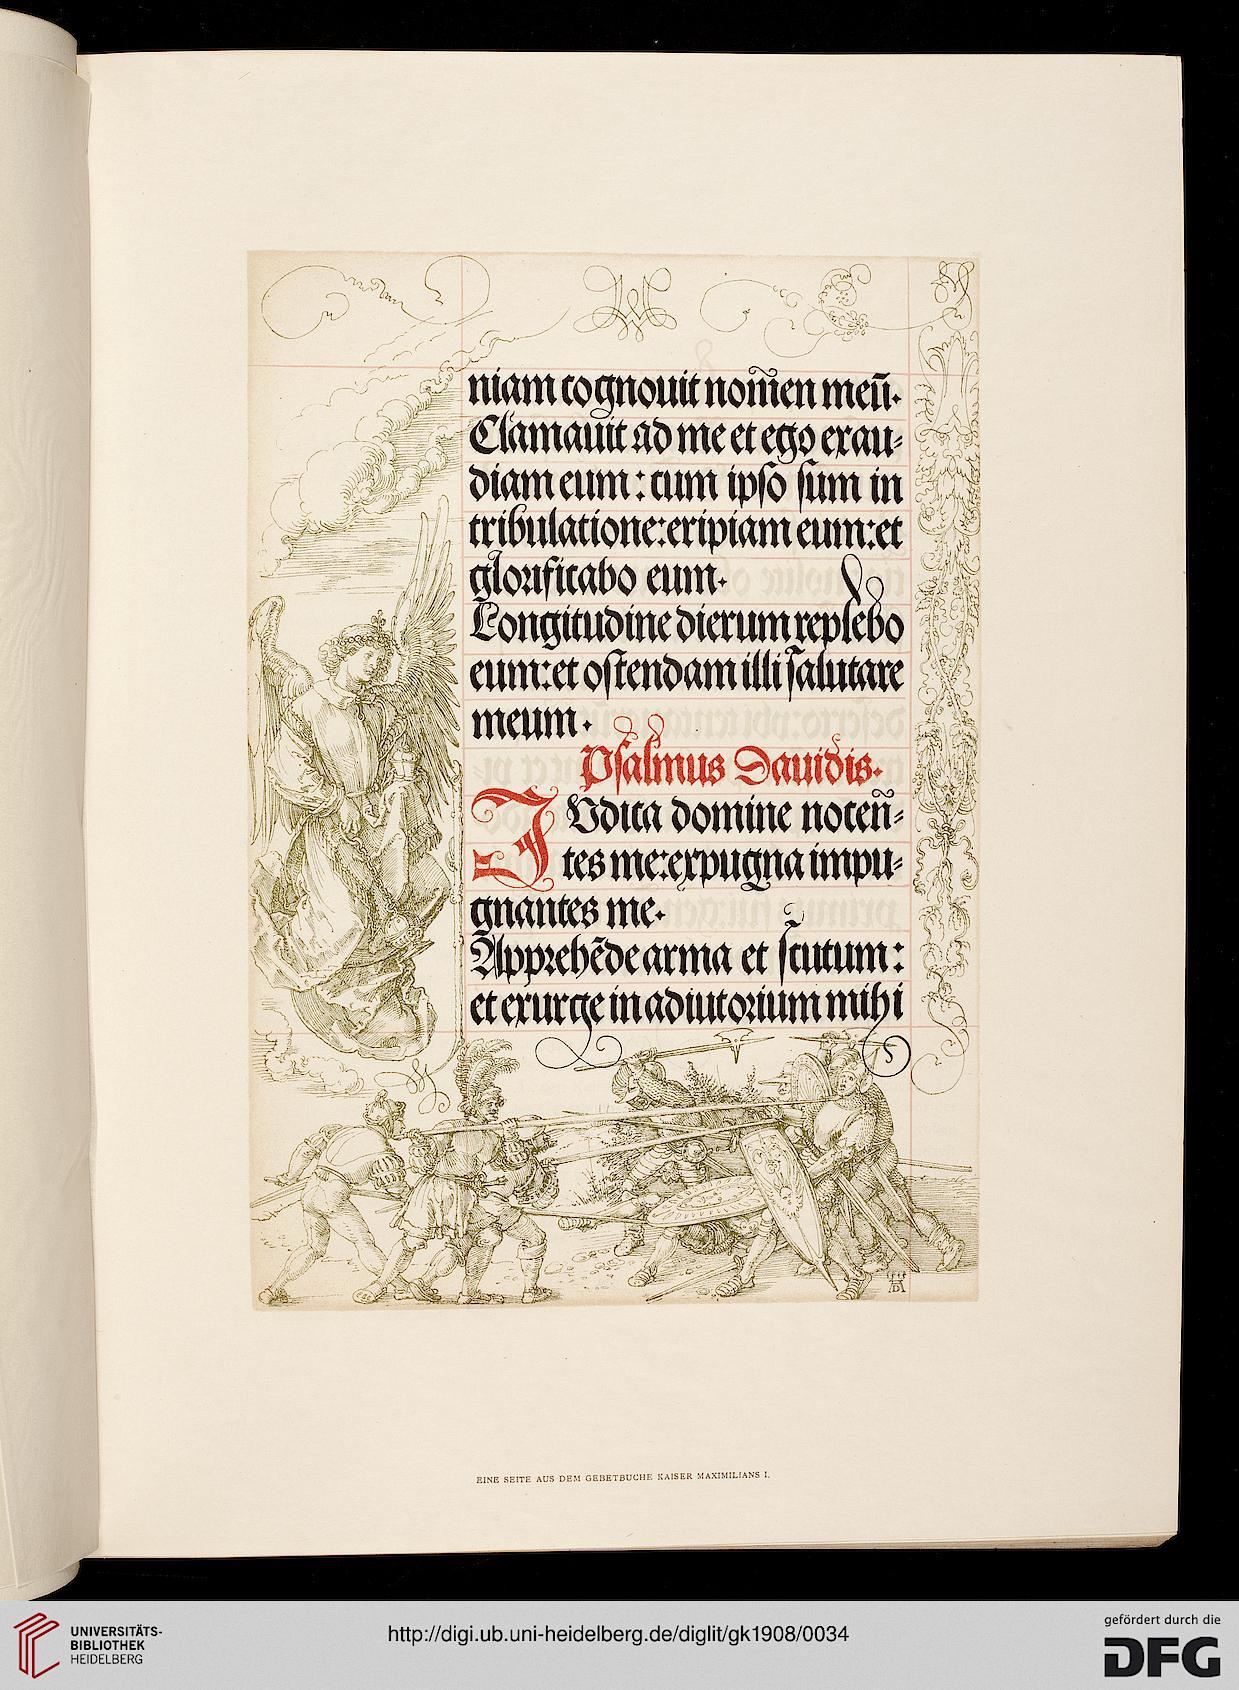 niam cognouit nom̃en meũ.
Clamauit ad me et ego exau⸗
diam eum: cum ipso sum in
tribulatione: eripiam eum: et
glorificabo eum.
Longitudine dierum replebo
eum: et ostendam illi salutare
meum.
Psalmus Dauidis.
IVdica domine nocen̄⸗
tes me: expugna impu⸗
gnantes me.
Apprehẽde arma et scutum:
et exurge in adiutorium mihi
AD
EINE SEITE AUS DEM GEBETBUCHE KAISER MAXIMILIANS I.
UNIVERSITÄTS-
BIBLIOTHEK
HEIDELBERG
http://digi.ub.uni-heidelberg.de/diglit/gk1908/0034
gefördert durch die
DFG